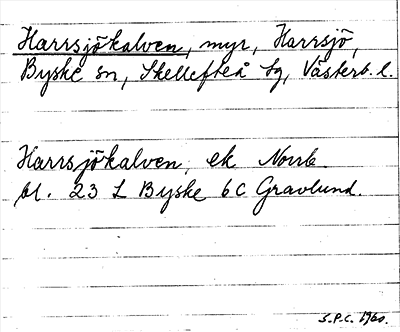 Harrsjökalven, myr, Harrsjö,
Byske sn, Skellefteå tg, Västerb. l.
Harrsjökalven, ek Norrb
bl. 23 L Byske 6 C Gravlund.
S.P.C. 1960.